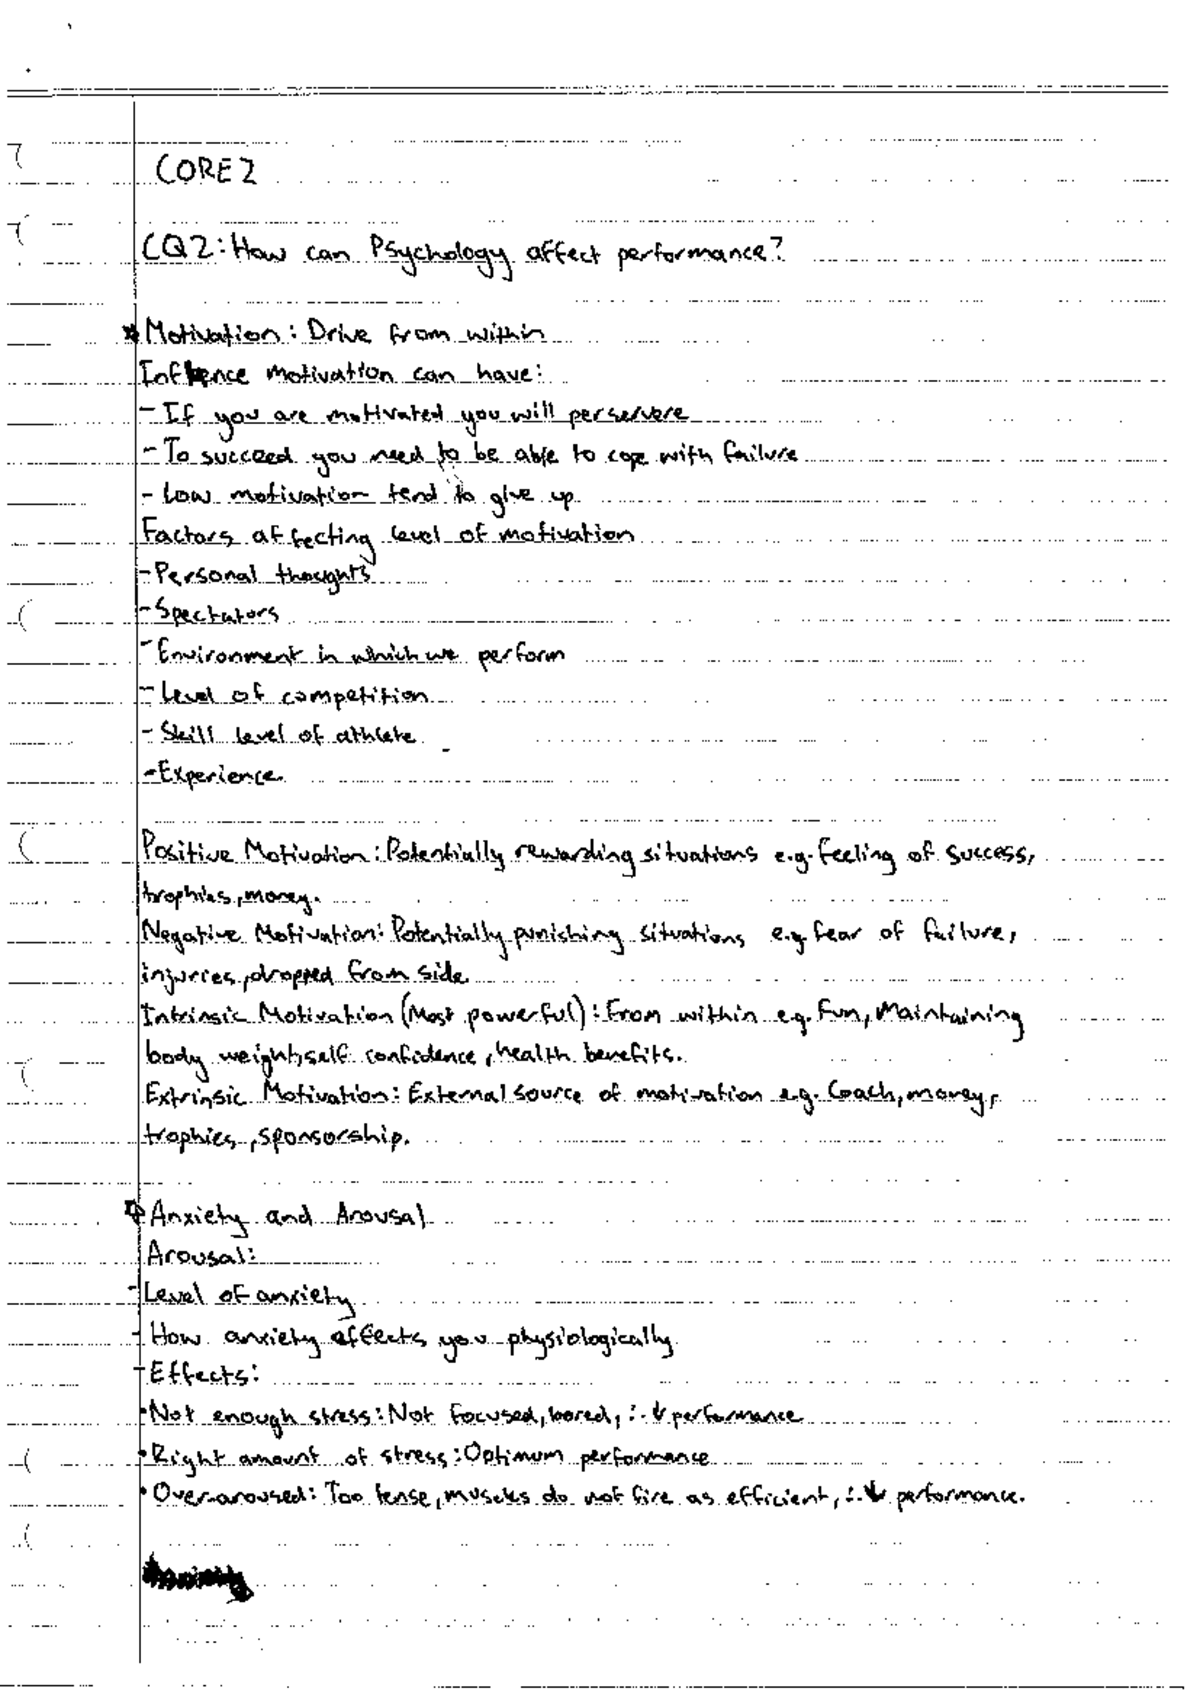 CORE 2
CQ2: How can Psychology affect performance?
* Motivation: Drive from within
Influence motivation can have:
- If you are motivated you will perservere
- To succeed you need to be able to cope with failure
- Low motivation tend to give up
Factors affecting level of motivation
- Personal thoughts
- Spectators
- Environment in which we perform
- Level of competition
- Skill level of athlete
- Experience.
Positive Motivation: Potentially rewarding situations e.g. feeling of success,
trophies, money.
Negative Motivation: Potentially punishing situations e.g. fear of failure,
injuries, dropped from side.
Intrinsic Motivation (Most powerful): From within e.g. Fun, Maintaining
body weight, self confidence, health benefits.
Extrinsic Motivation: External source of motivation e.g. Coach, money,
trophies, sponsorship.
* Anxiety and Arousal
Arousal:
- Level of anxiety
- How anxiety effects you physiologically
- Effects:
• Not enough stress: Not focused, bored, ∴ ↓ performance
• Right amount of stress: Optimum performance
• Over-aroused: Too tense, muscles do not fire as efficient, ∴ ↓ performance.